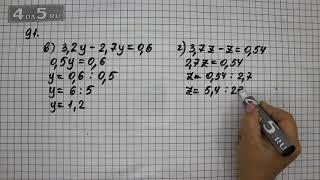 4DA5.RU
91.
в) 3,2y - 2,7y = 0,6
0,5y = 0,6
y = 0,6 : 0,5
y = 6 : 5
y = 1,2
г) 3,7z - z = 0,54
2,7z = 0,54
z = 0,54 : 2,7
z = 5,4 : 27